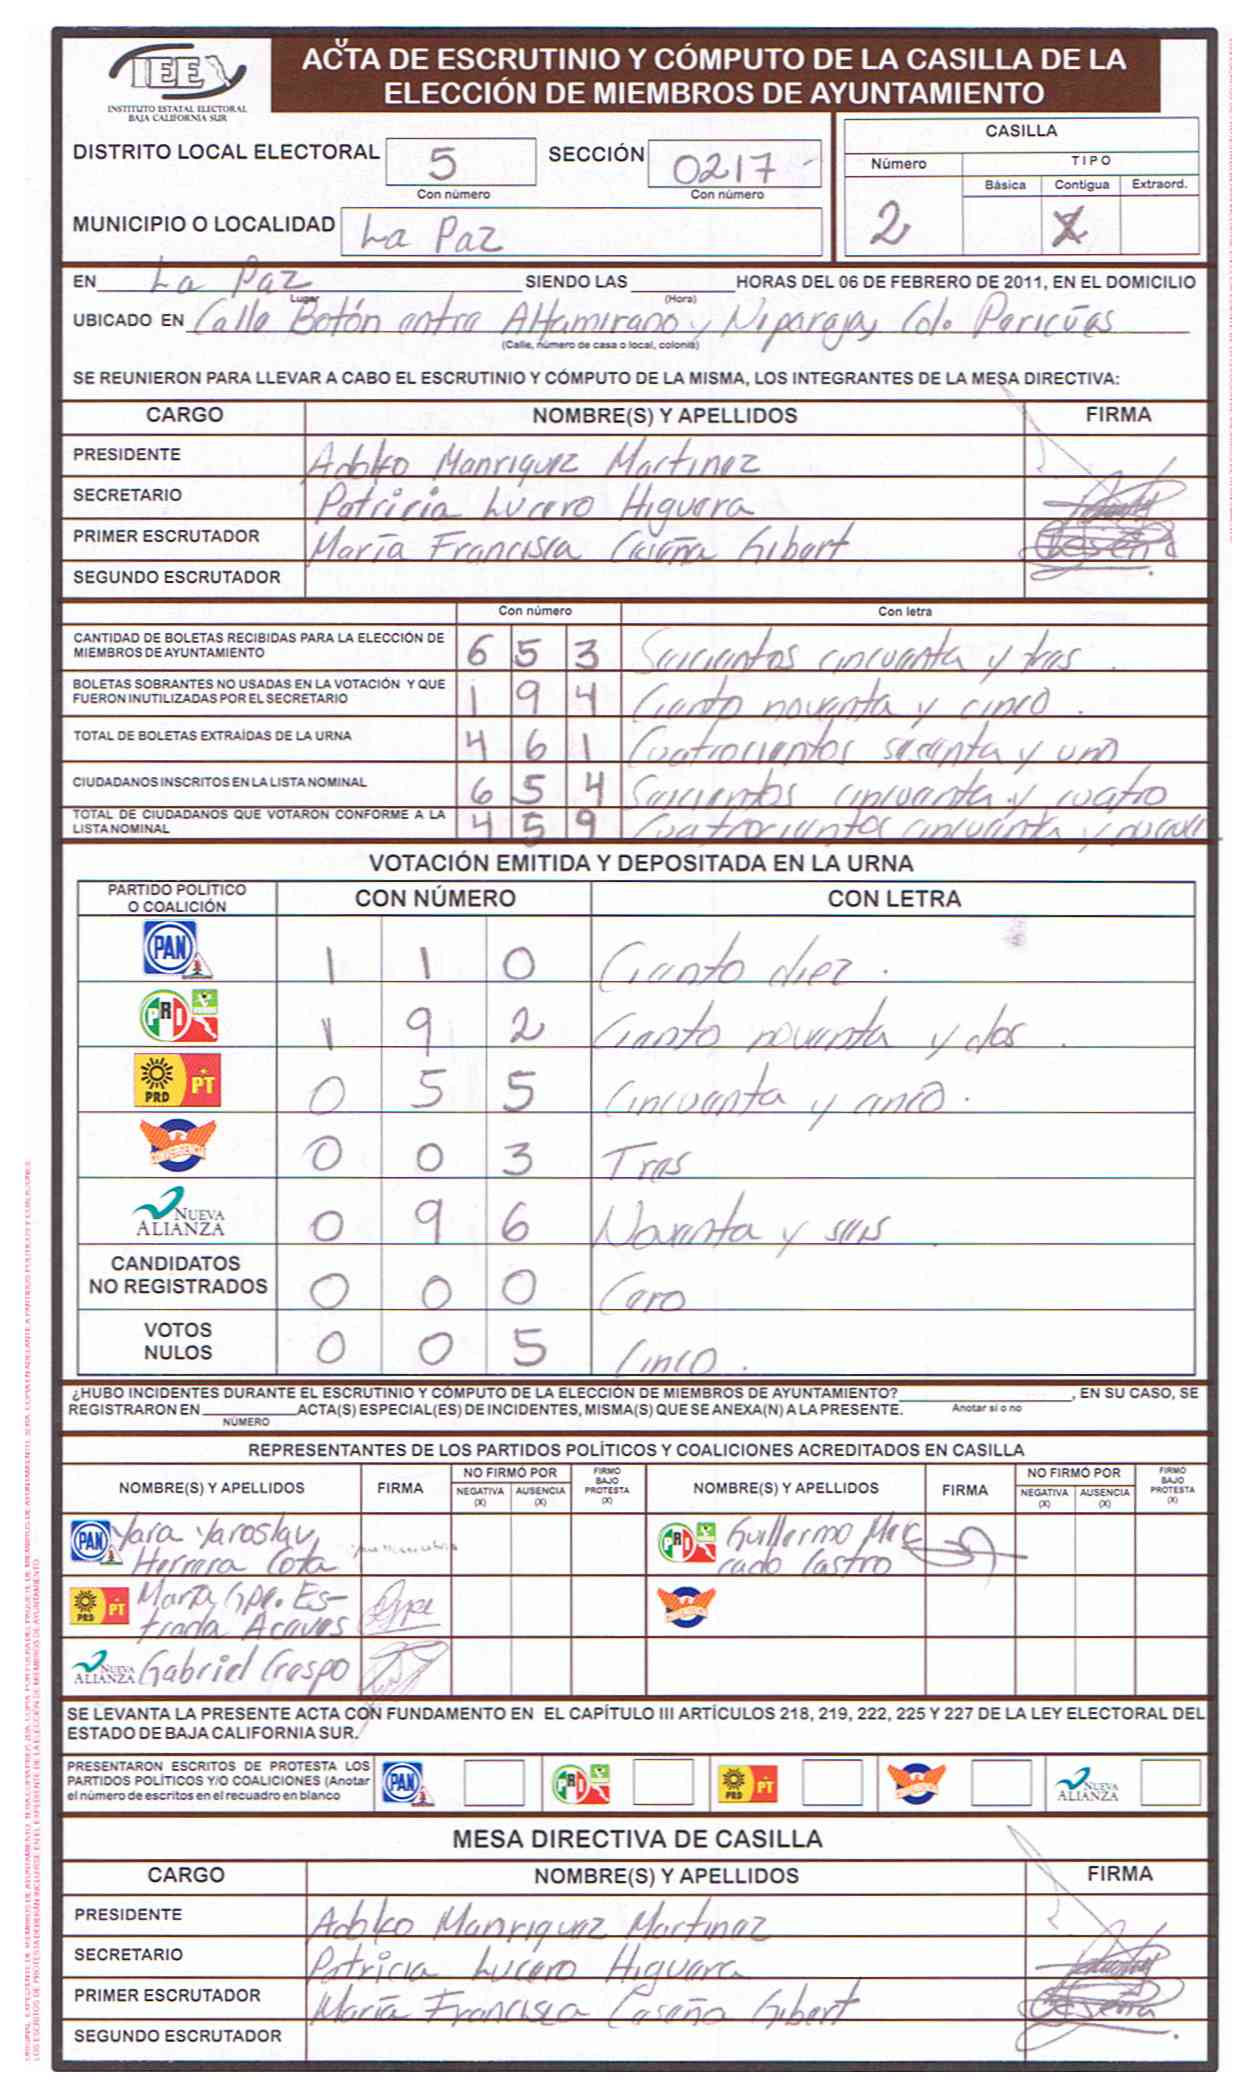 IEE
INSTITUTO ESTATAL ELECTORAL
BAJA CALIFORNIA SUR
ACTA DE ESCRUTINIO Y CÓMPUTO DE LA CASILLA DE LA
ELECCIÓN DE MIEMBROS DE AYUNTAMIENTO
DISTRITO LOCAL ELECTORAL 5 SECCIÓN 0217
Con número Con número
MUNICIPIO O LOCALIDAD La Paz
CASILLA
Número TIPO
Básica Contigua Extraord.
2 X
EN La Paz SIENDO LAS HORAS DEL 06 DE FEBRERO DE 2011, EN EL DOMICILIO
Lugar (Hora)
UBICADO EN Calle Botón entre Altamirano y Niparajá, Col. Pericúes
(Calle, número de casa o local, colonia)
SE REUNIERON PARA LLEVAR A CABO EL ESCRUTINIO Y CÓMPUTO DE LA MISMA, LOS INTEGRANTES DE LA MESA DIRECTIVA:
CARGO NOMBRE(S) Y APELLIDOS FIRMA
PRESIDENTE Adolfo Manriquez Martinez
SECRETARIO Patricia Lucero Higuera
PRIMER ESCRUTADOR María Francisca Caseña Gibert
SEGUNDO ESCRUTADOR
Con número Con letra
CANTIDAD DE BOLETAS RECIBIDAS PARA LA ELECCIÓN DE
MIEMBROS DE AYUNTAMIENTO 6 5 3 Seiscientos cincuenta y tres.
BOLETAS SOBRANTES NO USADAS EN LA VOTACIÓN Y QUE
FUERON INUTILIZADAS POR EL SECRETARIO 1 9 4 Ciento noventa y cinco.
TOTAL DE BOLETAS EXTRAÍDAS DE LA URNA 4 6 1 Cuatrocientos sesenta y uno
CIUDADANOS INSCRITOS EN LA LISTA NOMINAL 6 5 4 Seiscientos cincuenta y cuatro
TOTAL DE CIUDADANOS QUE VOTARON CONFORME A LA
LISTA NOMINAL 4 5 9 Cuatrocientos cincuenta y nueve
VOTACIÓN EMITIDA Y DEPOSITADA EN LA URNA
PARTIDO POLÍTICO
O COALICIÓN CON NÚMERO CON LETRA
PAN 1 1 0 Ciento diez.
PRI 1 9 2 Ciento noventa y dos.
PRD PT 0 5 5 Cincuenta y cinco.
CONVERGENCIA 0 0 3 Tres
NUEVA ALIANZA 0 9 6 Noventa y seis.
CANDIDATOS
NO REGISTRADOS 0 0 0 Cero
VOTOS
NULOS 0 0 5 Cinco.
¿HUBO INCIDENTES DURANTE EL ESCRUTINIO Y CÓMPUTO DE LA ELECCIÓN DE MIEMBROS DE AYUNTAMIENTO? , EN SU CASO, SE
REGISTRARON EN ACTA(S) ESPECIAL(ES) DE INCIDENTES, MISMA(S) QUE SE ANEXA(N) A LA PRESENTE. Anotar si o no
NÚMERO
REPRESENTANTES DE LOS PARTIDOS POLÍTICOS Y COALICIONES ACREDITADOS EN CASILLA
NOMBRE(S) Y APELLIDOS FIRMA NO FIRMÓ POR NEGATIVA (X) AUSENCIA (X) FIRMÓ BAJO PROTESTA (X) NOMBRE(S) Y APELLIDOS FIRMA NO FIRMÓ POR NEGATIVA (X) AUSENCIA (X) FIRMÓ BAJO PROTESTA (X)
PAN Yara Yaroslav PRI Guillermo Mer
Herrera Cota cado Castro
PRD PT María Gpe. Es-
trada Aceves
NUEVA ALIANZA Gabriel Crespo
SE LEVANTA LA PRESENTE ACTA CON FUNDAMENTO EN EL CAPÍTULO III ARTÍCULOS 218, 219, 222, 225 Y 227 DE LA LEY ELECTORAL DEL
ESTADO DE BAJA CALIFORNIA SUR.
PRESENTARON ESCRITOS DE PROTESTA LOS
PARTIDOS POLÍTICOS Y/O COALICIONES (Anotar
el número de escritos en el recuadro en blanco PAN PRI PRD PT NUEVA ALIANZA
MESA DIRECTIVA DE CASILLA
CARGO NOMBRE(S) Y APELLIDOS FIRMA
PRESIDENTE Adolfo Manriquez Martinez
SECRETARIO Patricia Lucero Higuera
PRIMER ESCRUTADOR María Francisca Caseña Gibert
SEGUNDO ESCRUTADOR